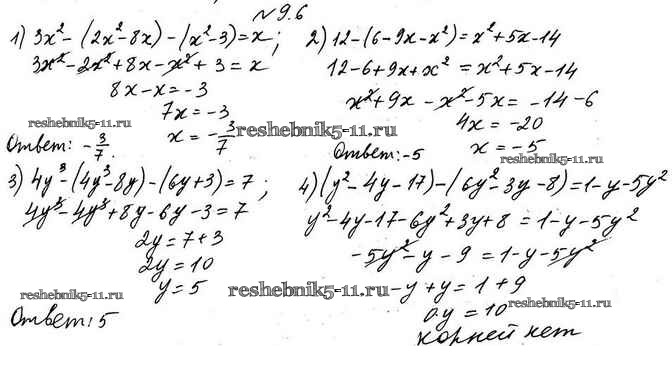 №9.6
1) 3x² - (2x² - 8x) - (x² - 3) = x;
3x² - 2x² + 8x - x² + 3 = x
8x - x = -3
7x = -3
x = -3/7
Ответ: -3/7.
2) 12 - (6 - 9x - x²) = x² + 5x - 14
12 - 6 + 9x + x² = x² + 5x - 14
x² + 9x - x² - 5x = -14 - 6
4x = -20
x = -5
Ответ: -5
3) 4y³ - (4y³ - 8y) - (6y + 3) = 7;
4y³ - 4y³ + 8y - 6y - 3 = 7
2y = 7 + 3
2y = 10
y = 5
Ответ: 5
4) (y² - 4y - 17) - (6y² - 3y - 8) = 1 - y - 5y²
y² - 4y - 17 - 6y² + 3y + 8 = 1 - y - 5y²
-5y² - y - 9 = 1 - y - 5y²
-y + y = 1 + 9
0y = 10
корней нет
reshebnik5-11.ru
reshebnik5-11.ru
reshebnik5-11.ru
reshebnik5-11.ru
reshebnik5-11.ru
reshebnik5-11.ru